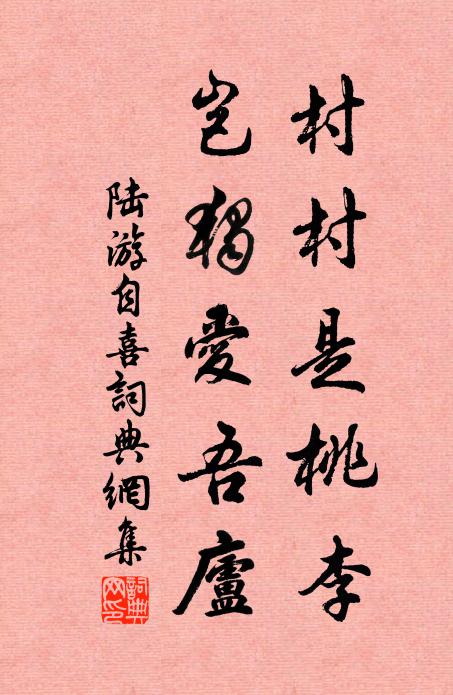 村村是桃李
岂獨愛吾廬
陆游自喜詞典網集
詞典网印